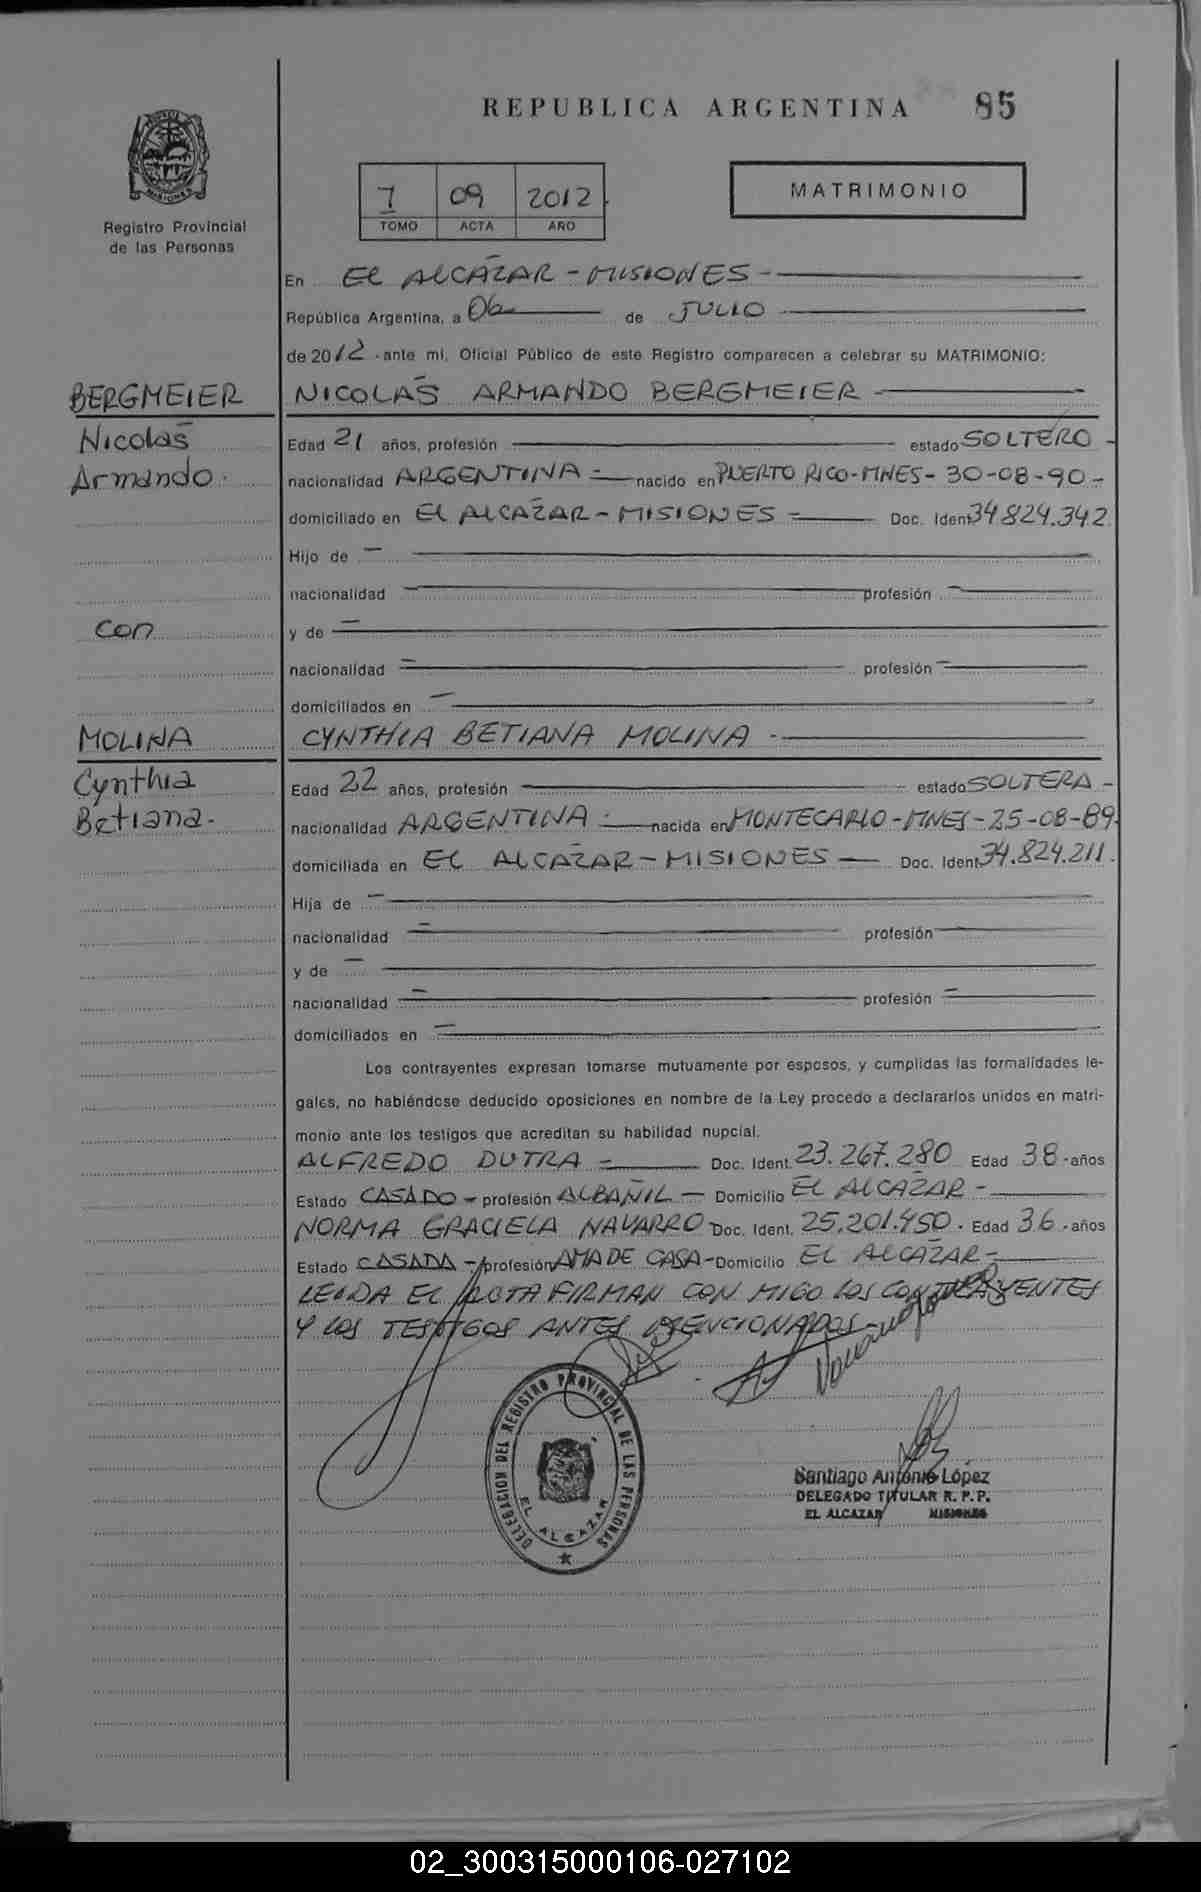 REPUBLICA ARGENTINA 85
MISIONES
Registro Provincial
de las Personas
7 09 2012
TOMO ACTA AÑO
MATRIMONIO
En EL ALCÁZAR - MISIONES -
República Argentina, a 06 de JULIO
de 2012 - ante mi, Oficial Público de este Registro comparecen a celebrar su MATRIMONIO:
BERGMEIER NICOLÁS ARMANDO BERGMEIER -
Nicolás Edad 21 años, profesión estado SOLTERO -
Armando. nacionalidad ARGENTINA = nacido en PUERTO RICO-MNES- 30-08-90-
domiciliado en EL ALCAZAR - MISIONES = Doc. Ident 34.824.342
Hijo de -
nacionalidad - profesión -
con y de -
nacionalidad - profesión -
domiciliados en -
MOLINA CYNTHIA BETIANA MOLINA -
Cynthia Edad 22 años, profesión estado SOLTERA -
Betiana. nacionalidad ARGENTINA = nacida en MONTECARLO - MNES - 25-08-89.
domiciliada en EL ALCAZAR - MISIONES - Doc. Ident. 34.824.211.
Hija de -
nacionalidad - profesión -
y de -
nacionalidad - profesión -
domiciliados en -
Los contrayentes expresan tomarse mutuamente por esposos, y cumplidas las formalidades le-
gales, no habiéndose deducido oposiciones en nombre de la Ley procedo a declararlos unidos en matri-
monio ante los testigos que acreditan su habilidad nupcial.
ALFREDO DUTRA = Doc. Ident. 23.267.280 Edad 38 - años
Estado CASADO - profesión ALBAÑIL - Domicilio EL ALCAZAR -
NORMA GRACIELA NAVARRO Doc. Ident. 25.201.450. Edad 36 - años
Estado CASADA - profesión AMA DE CASA - Domicilio EL ALCAZAR -
LEIDA EL ACTA FIRMAN CON MIGO LOS CONTRAYENTES
Y LOS TESTIGOS ANTES MENCIONADOS -
DELEGACION DEL REGISTRO PROVINCIAL DE LAS PERSONAS
EL ALCAZAR
Santiago Antonio López
DELEGADO TITULAR R. P. P.
EL ALCAZAR MISIONES
02_300315000106-027102